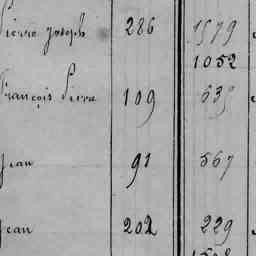 Pierre Joseph 286 1579
1052
François Pierre 109 635
Jean 91 567
Jean 202 229